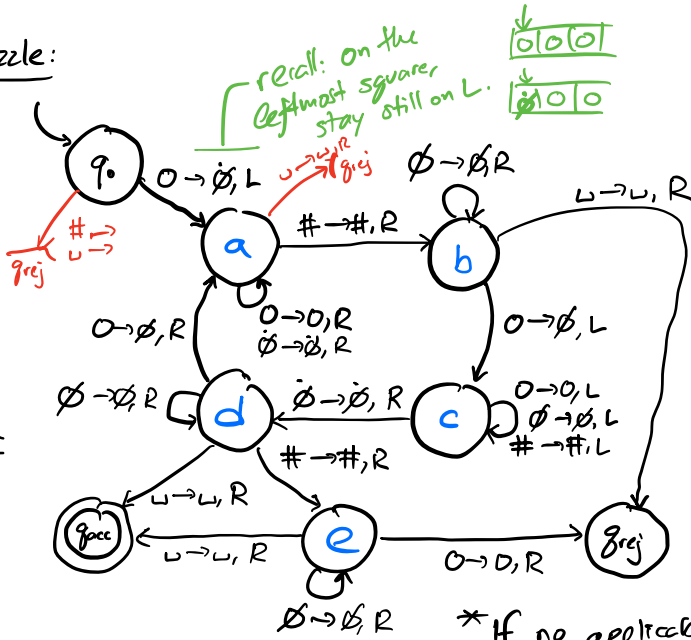 zzle:
recall: on the
leftmost square,
stay still on L.
0 0 0
0̸̇ 0 0
q₀
0 → 0̸̇, L
⊔ → ⊔, R
qrej
# →
⊔ →
qrej
a
# → #, R
b
0̸ → 0̸, R
⊔ → ⊔, R
0 → 0, R
0̸̇ → 0̸̇, R
0 → 0̸, R
0 → 0̸, L
0̸ → 0̸, R
d
0̸̇ → 0̸̇, R
c
0 → 0, L
0̸ → 0̸, L
# → #, L
# → #, R
⊔ → ⊔, R
qacc
⊔ → ⊔, R
e
0 → 0, R
qrej
0̸ → 0̸, R
* If no applicab